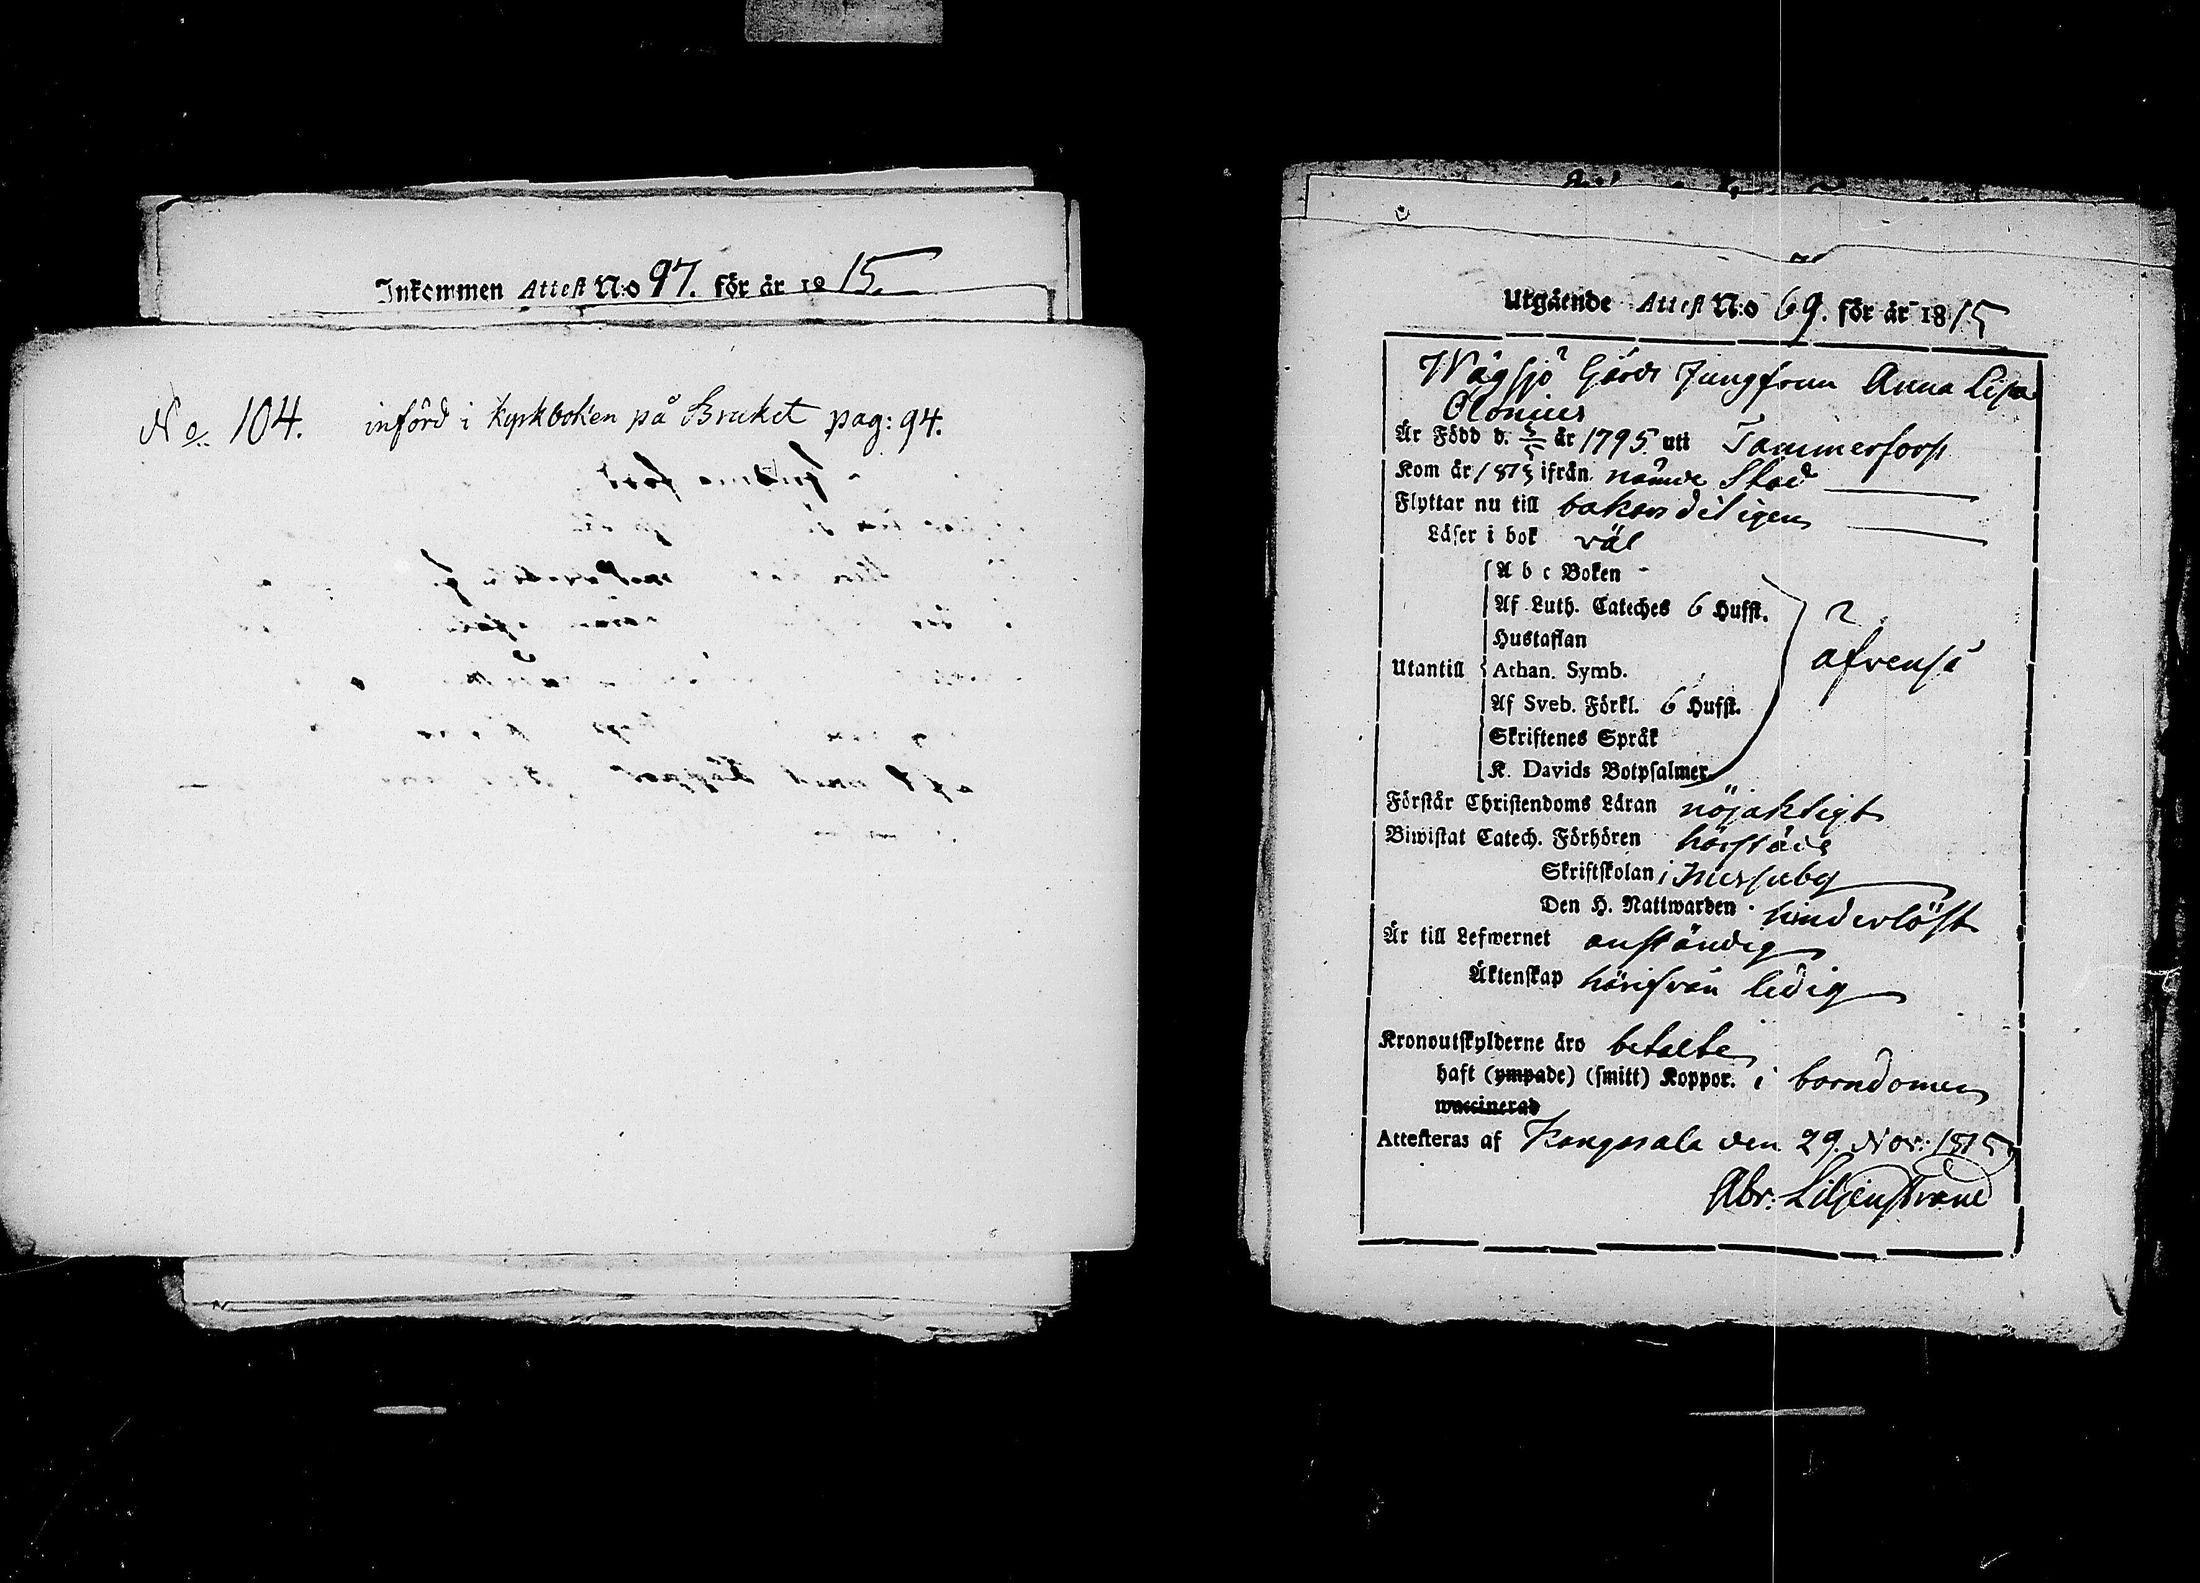 Inkommen Attest N:o 97. för år 1815.
No. 104. införd i Kyrkboken på Bruket pag: 94.
Utgående Attest N:o 69. för år 1815
Wägsjö Gårds Jungfrun Anna Lisa
Clonius
Är Född d. 5/5 år 1795. uti Tammerfors
Kom år 1815 ifrån nämde Stad
Flyttar nu till
Läser i bok väl
Utantill
A b c Boken -
Af Luth. Cateches 6 Hufst.
Hustaflan
Athan. Symb.
Af Sveb. Förkl. 6 Hufst.
Skriftenes Språk
K. Davids Botpsalmer
äfvenså
Förstår Christendoms Läran nöjaktigt
Biwistat Catech. Förhören härstäds
Skriftskolan i Messuby
Den H. Nattwarden hinderlöst
Är till Lefwernet anständig
Äktenskap härifrån ledig
Kronoutskylderne äro betalte
haft (ympade) (smitt) Koppor. i barndomen
waccinerad
Attesteras af Kangasala den 29. Nov: 1815.
Abr: Liljenstrand